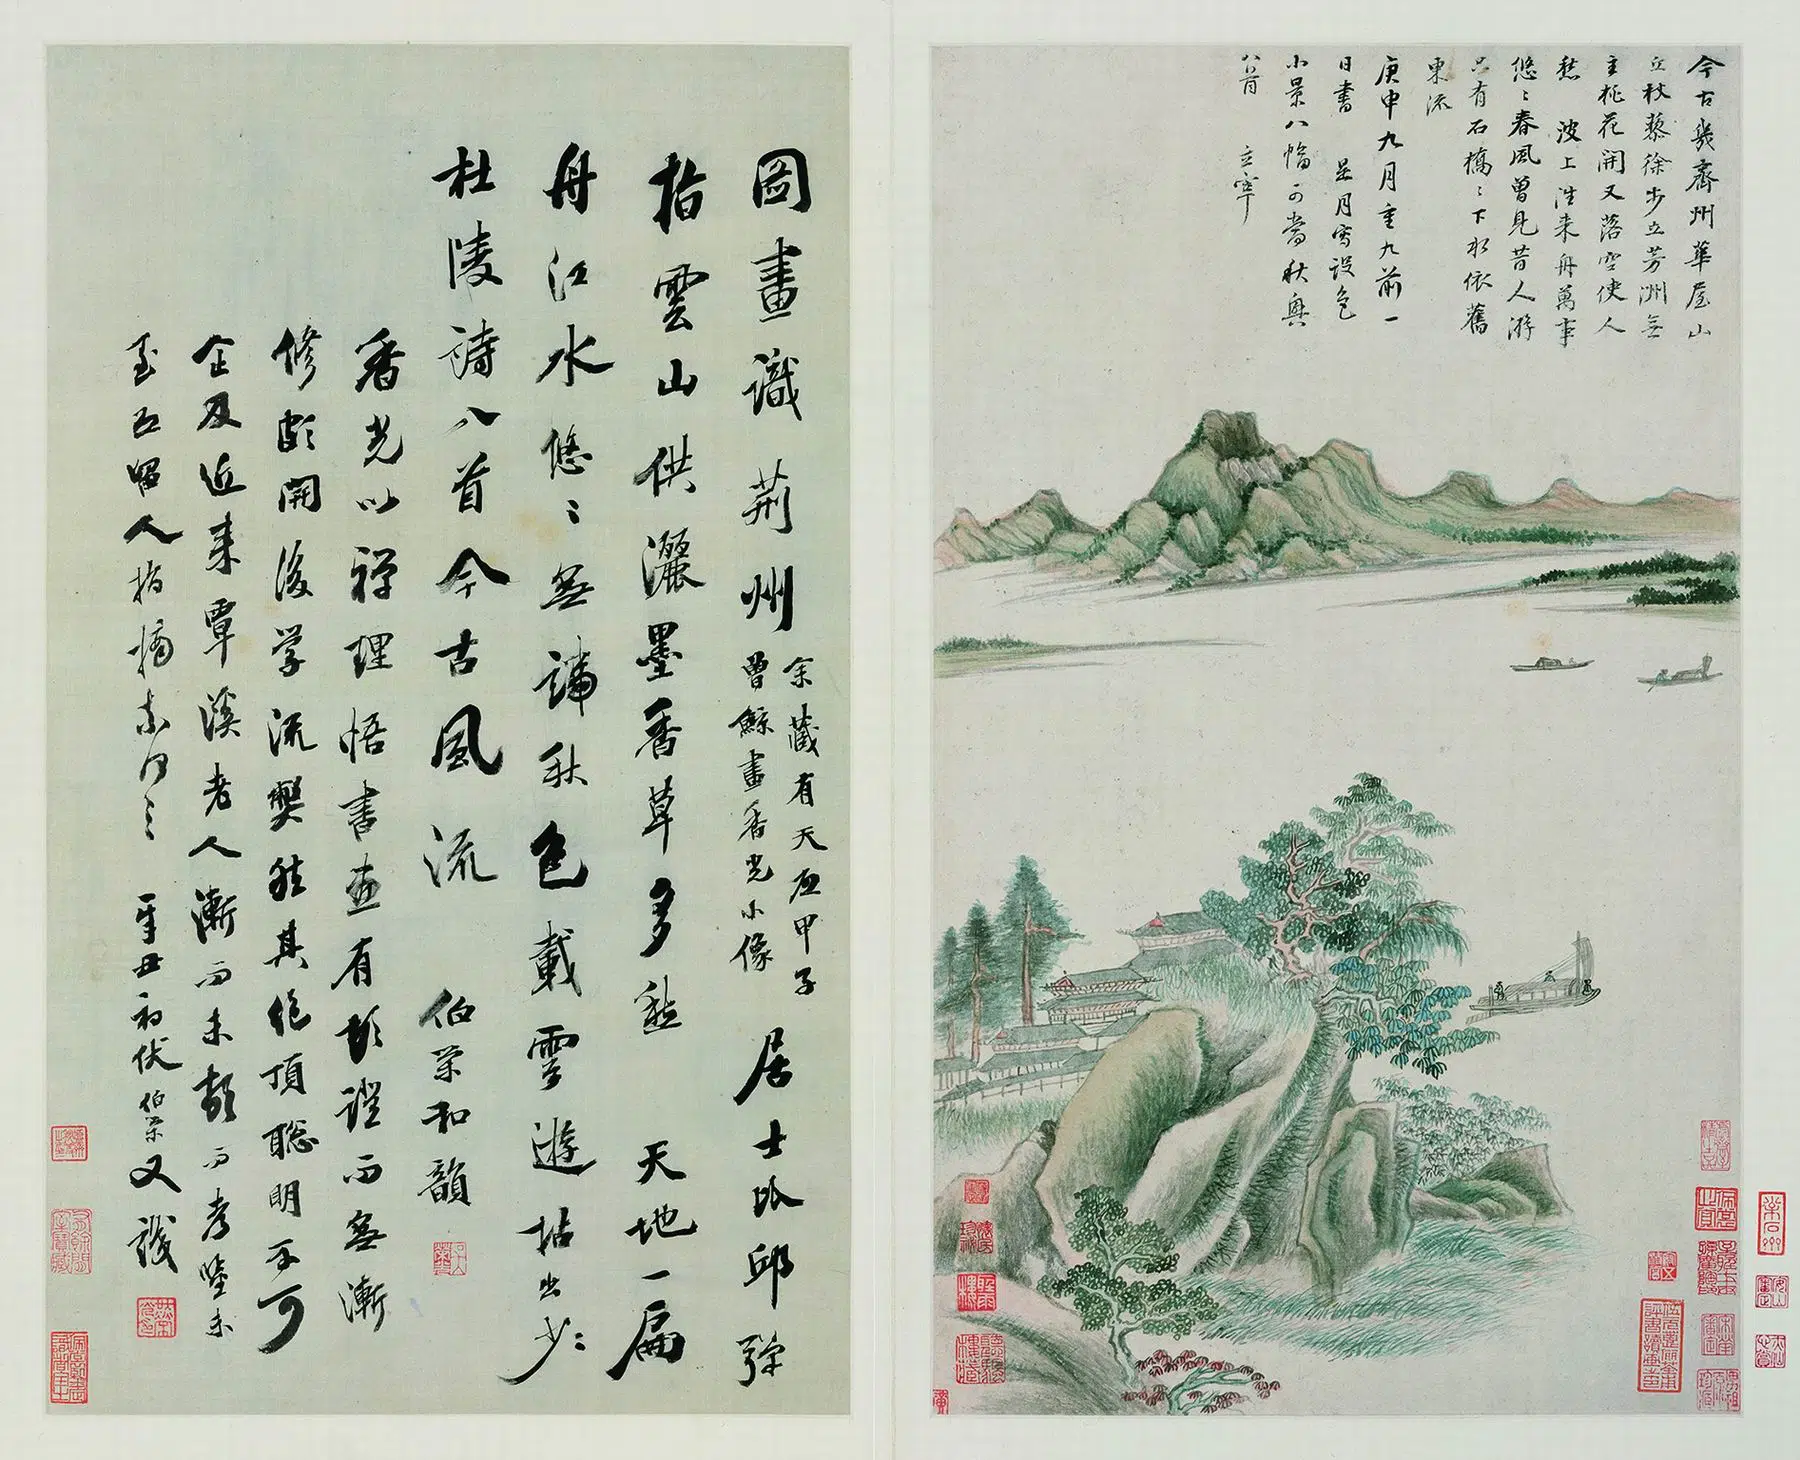 今古幾齊州華屋山
丘杖藜徐步立芳洲無
主桃花開又落空使人
愁 波上往來舟萬事
悠〻春風曾見昔人游
只有石橋〻下水依舊
東流
庚申九月重九前一
日書 是月寫設色
小景八幅可當秋興
八首 玄宰
圖畫識荆州 余藏有天启甲子
曾鯨畫香光小像 居士臥邱彈
指雲山供灑墨香草多愁 天地一扁
舟江水悠〻無端秋色載雪遊拈出少〻
杜陵詩八首今古風流 伯榮和韻
香光以禪理悟書畫有頓證而無漸
修頗開後学流弊然其絕頂聰明不可
企及近來覃溪老人漸而未頓而考隲未
至亦留人指摘奈何〻〻 辛丑初伏伯榮又識